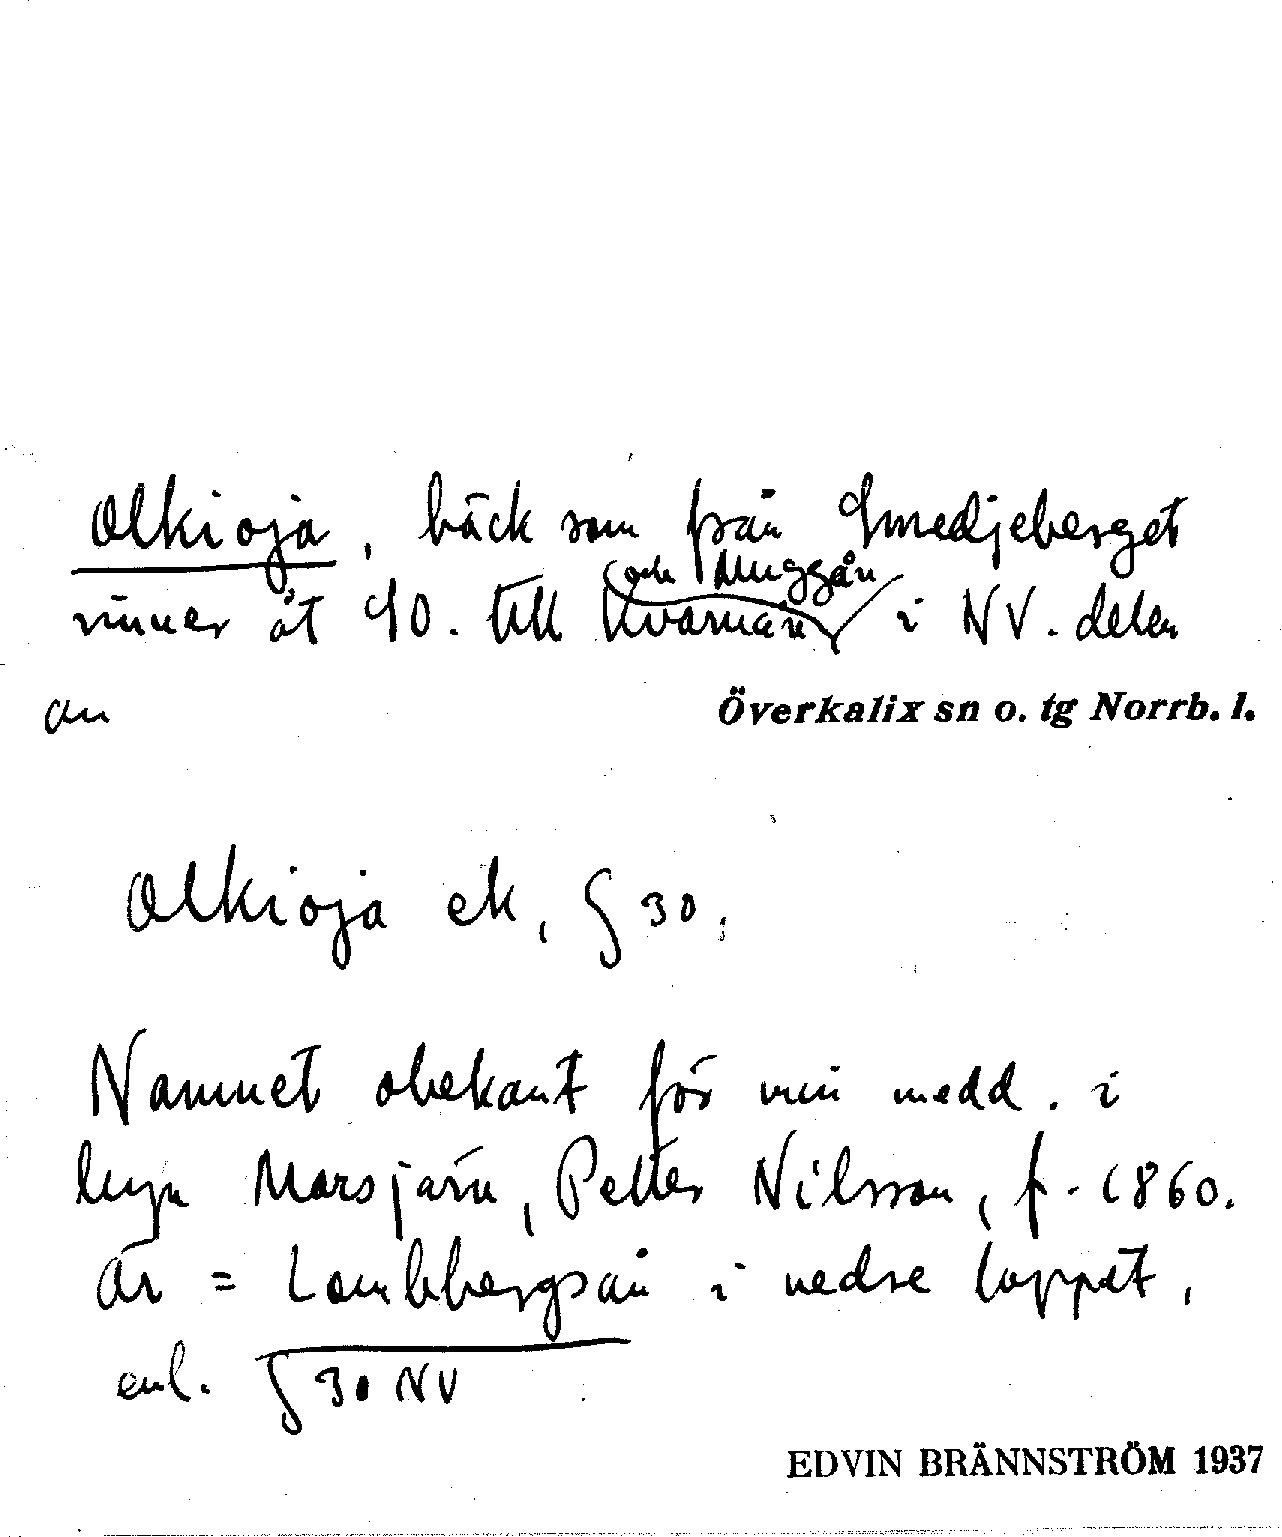 Olkioja, bäck som från Smedjeberget
och Muggån
rinner åt SO. till Kvarnån i NV. delen
av
Överkalix sn o. tg Norrb. l.
Olkioja ek, § 30,
Namnet obekant för min medd. i
byn Marsjärv, Petter Nilsson, f. 1860.
Är = Lombbergsån i nedre loppet,
enl. § 30 NV
EDVIN BRÄNNSTRÖM 1937